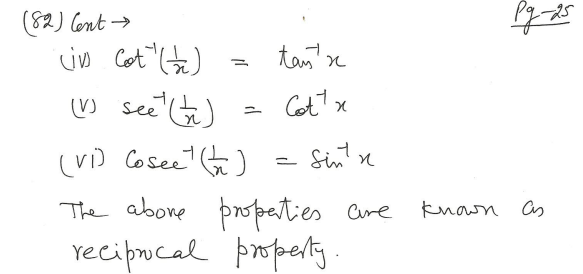 (82) Cont → Pg-25
(iv) Cot⁻¹(1/x) = tan⁻¹ x
(v) sec⁻¹(1/x) = Cot⁻¹ x
(vi) Cosec⁻¹(1/x) = Sin⁻¹ x
The above properties are known as
reciprocal property.